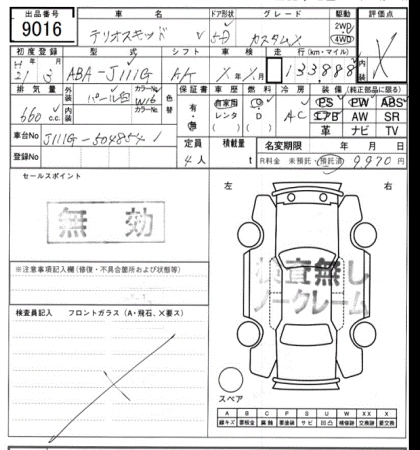 出品番号 車名 ドア形状 グレード 駆動 評価点
9016 テリオスキッド 5D カスタムX 2WD 4WD X
初度登録 型式 シフト 車検 走行(km・マイル) 内装
H21 3 ABA-J111G AK X年X月 133,888
排気量 外装 カラーNo. 色替 保証書 車歴 燃料 冷房 装備(純正部品に限る)
660 c.c. パール白 W16 有・無 自家用 レンタ G D AC PS PW ABS
内装 カラーNo. エアB AW SR
車台No J111G-504854 革 ナビ TV
登録No 定員 4人 積載量 t 名変期限 年 月 日
R料金 未預託・預託済 9,970円
セールスポイント
無効
左 右
※注意事項記入欄(修復・不具合箇所および状態等)
検査無し
ノークレーム
検査員記入 フロントガラス(A・飛石、X要ス)
スペア
A B C P S U W X XX
線キズ 要板金 腐触 要塗装 サビ 凹凸 補修跡 交換跡 要交換